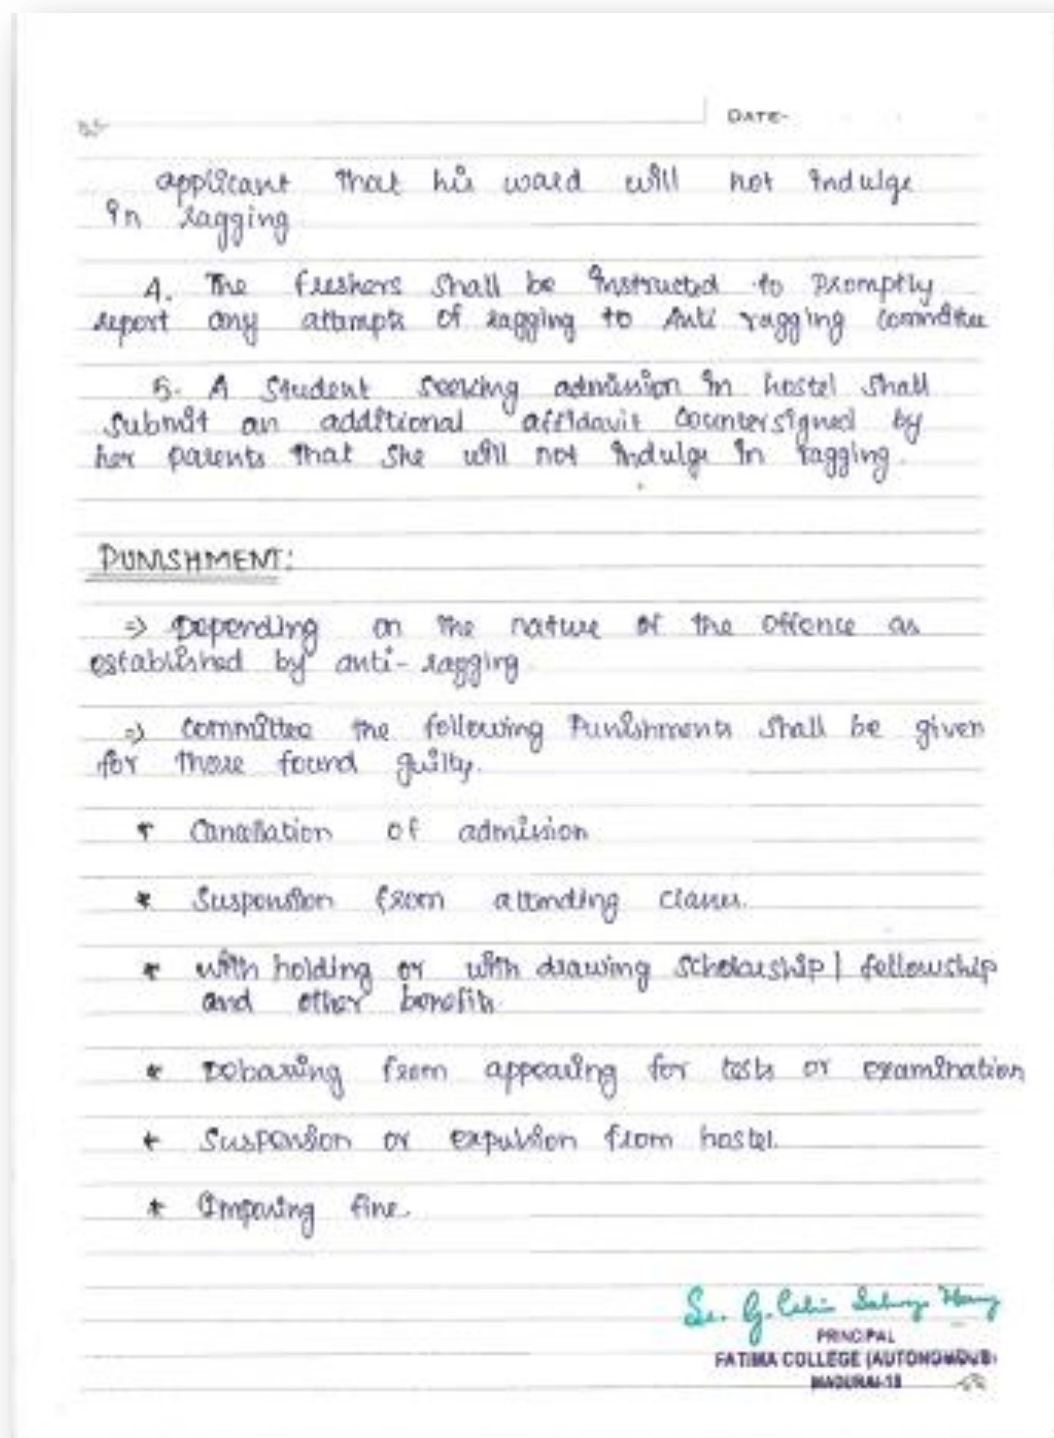 DATE-
applicant that his ward will not indulge
in ragging
4. The freshers shall be instructed to promptly
report any attempts of ragging to Anti ragging Committee
5. A Student seeking admission in hostel shall
submit an additional affidavit countersigned by
her parents that she will not indulge in ragging.
PUNISHMENT:
=> Depending on the nature of the offence as
established by anti-ragging.
=> Committee the following Punishments shall be given
for those found guilty.
* Cancellation of admission
* Suspension from attending classes.
* with holding or with drawing Scholarship | fellowship
and other benefits
* Debarring from appearing for tests or examination
* Suspension or expulsion from hostel.
* Imposing fine.
Sr. G.
PRINCIPAL
FATIMA COLLEGE (AUTONOMOUS)
MADURAI-18